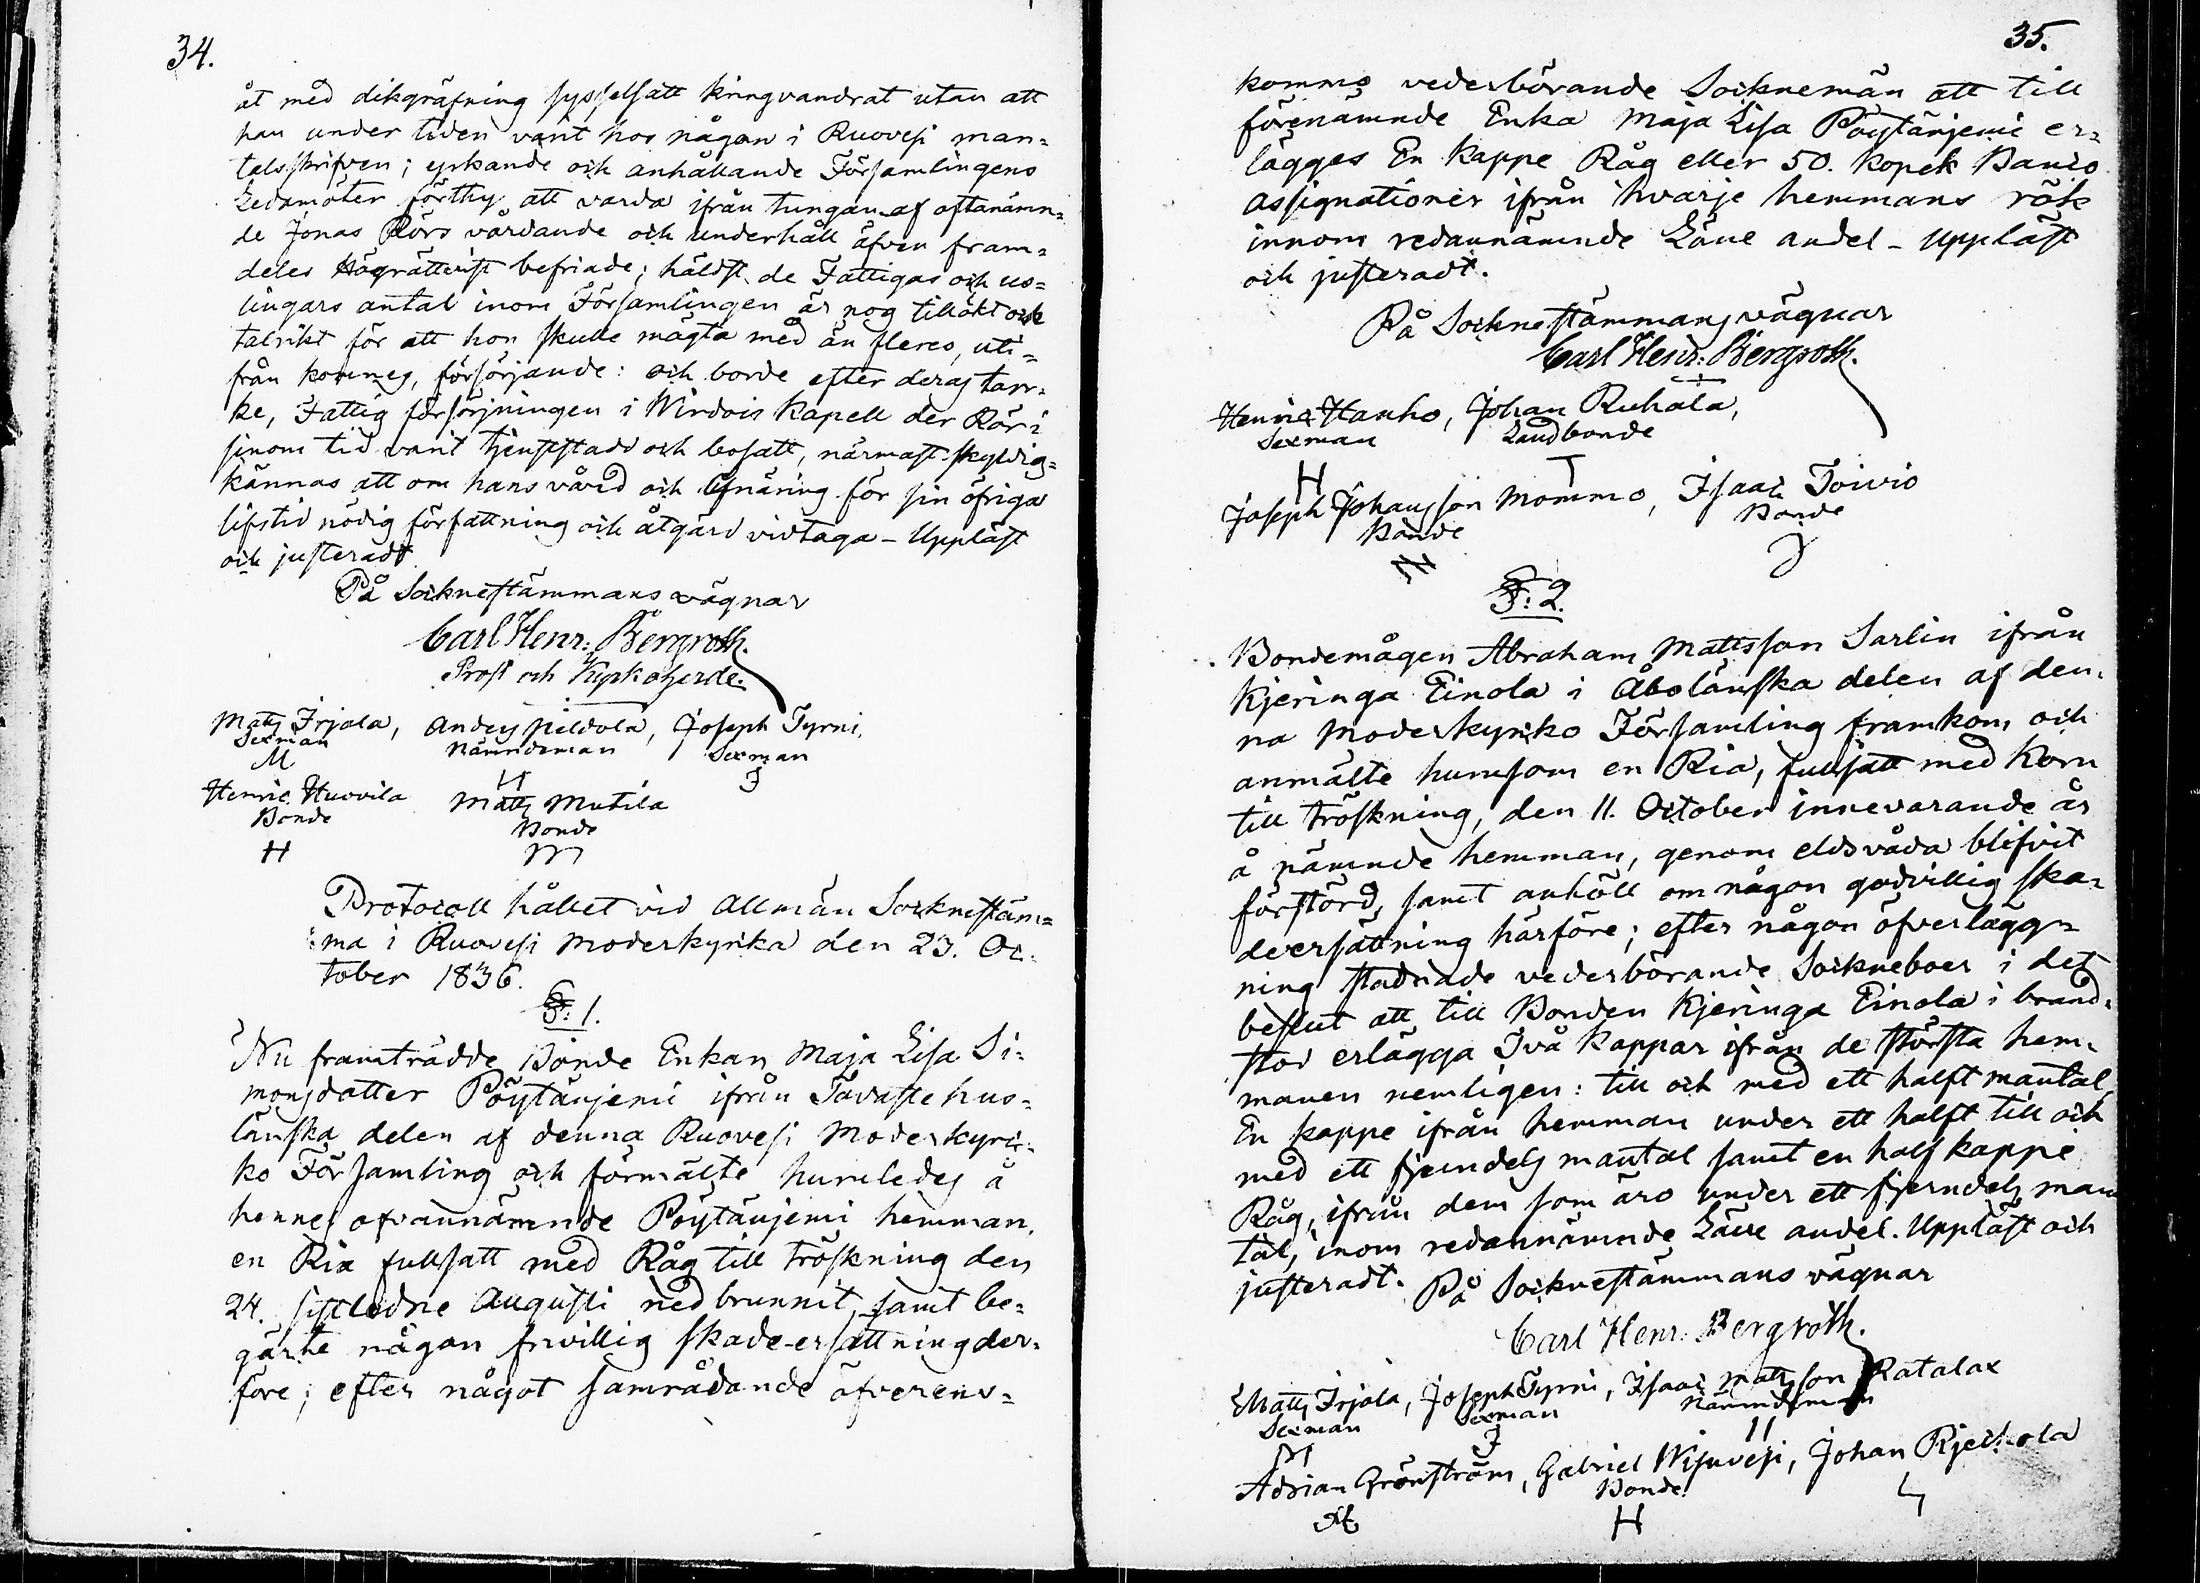 34.
åt med dikgräfning sysselsatt kringvandrat utan att
han under tiden varit hos någon i Ruovesi man=
talsskrifven; yrkande och anhållande Församlingens
Ledamöter förthy att varda ifrån tungan af oftanämn=
de Jonas Rörs vårdande och underhåll äfven fram=
deles Högrättvist befriade; häldst de Fattigas och us=
lingars antal inom Församlingen är nog tillökt och
talrikt för att hon skulle mägta med än fleres, uti=
från kommes, försörjande: och borde efter deras tan=
ke, Fattig försörjningen i Wirdois Kapell der Rör i
sinom tid varit tjenststadd och bosatt, närmast skyldig=
kännas att om hans vård och lifnäring för sin öfriga
lifstid nödig författning och åtgärd vidtaga - Uppläst
och justeradt
På Socknestämmans vägnar
Carl Henr: Bergroth.
Prost och Kyrkoherde.
Matts Irjala, Anders Pieldola, Joseph Tyrni,
Sexman Nämndeman Sexman
M H J
Henric Huovila Matts Mutila
Bonde Bonde
H M
Protocoll hållet vid Allmän Socknestäm=
ma i Ruovesi Moderkyrka den 23. Oc=
tober 1836.
§: 1.
Nu framträdde Bonde Enkan Maja Lisa Si=
monsdotter Pöytäniemi ifrån Tavastehus=
länska delen af denna Ruovesi Moderkyr=
ko Församling och förmälte huruledes å
hennes ofvannämnde Pöytäniemi hemman,
en Ria fullsatt med Råg till tröskning den
24. sistledne Augusti nedbrunnit, samt be=
gärte någon frivillig skade-ersättning der=
före; efter något samrådande öfverens=
35.
komma vederbörande Socknemän att till
förenämnde Enka Maja Lisa Pöytäniemi er=
lägges En Kappe Råg eller 50. kopek Banco
Assignationer ifrån hvarje hemmans rök
innom redannämnde Läne andel - Uppläst
och justeradt.
På Sockne stämmans vägnar
Carl Henr: Bergroth.
Henric Hanho, Johan Ruhala,
Sexman Landbonde
H T
Joseph Johansson Mommo, Isaac Toivio
Bonde Bonde
§: 2.
Bondemågen Abraham Mattsson Sarlin ifrån
Kjeringa Einola i Åbolänska delen af den=
na Moderkyrko Församling framkom och
anmälte hurusom en Ria, fullsatt med Korn
till tröskning, den 11. October innevarande år
å nämnde hemman, genom eldsvåda blifvit
förstörd, samt anhöll om någon godvillig ska=
deersättning härföre; efter någon öfverlägg=
ning stadnade vederbörande Sockneboer i det
beslut att till Bonden Kjeringa Einola i brand=
stod erlägga Två Kappar ifrån de största hem=
manen nemligen: till och med ett halft mantal
En kappe ifrån hemman under ett halft till och
med ett fjerndels mantal samt en half kappe
Råg, ifrån dem som äro under ett fjerndels man
tal, inom redannämnde Läne andel. Uppläst och
justeradt. På Socknestämmans vägnar
Carl Henr: Bergroth.
Matts Irjala, Joseph Tyrni, Isaac Mattsson Ratalax
Sexman Sexman Nämndeman
M J H
Adrian Grönström, Gabriel Wisuvesi, Johan
Bonde
H